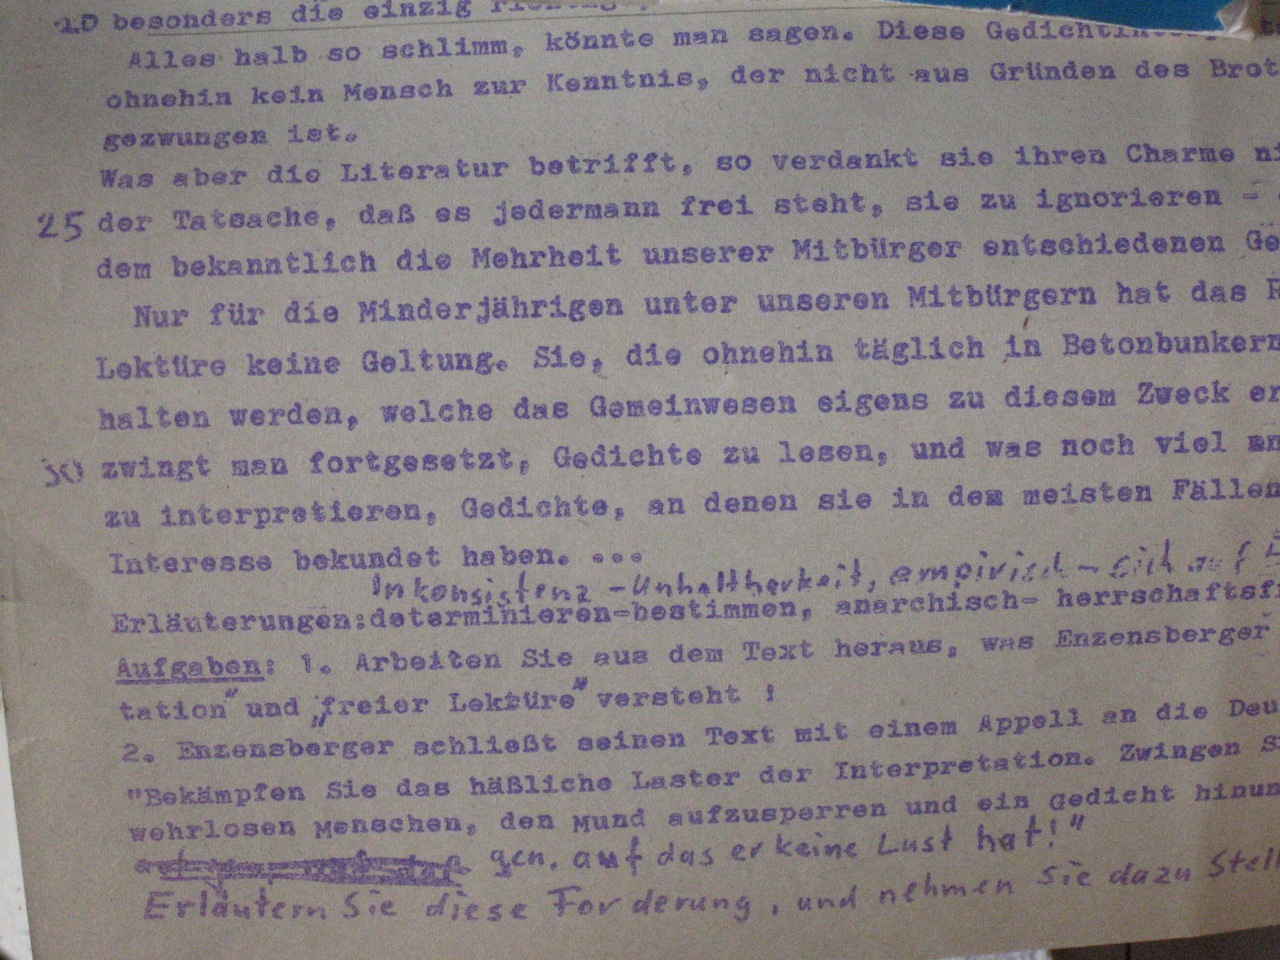 20 besonders die einzig
Alles halb so schlimm, könnte man sagen. Diese
ohnehin kein Mensch zur Kenntnis, der nicht aus Gründen des Brot
gezwungen ist.
Was aber die Literatur betrifft, so verdankt sie ihren Charme ni
25 der Tatsache, daß es jedermann frei steht, sie zu ignorieren -
dem bekanntlich die Mehrheit unserer Mitbürger entschiedenen Ge
Nur für die Minderjährigen unter unseren Mitbürgern hat das R
Lektüre keine Geltung. Sie, die ohnehin täglich in Betonbunkern
halten werden, welche das Gemeinwesen eigens zu diesem Zweck er
30 zwingt man fortgesetzt, Gedichte zu lesen, und was noch viel
zu interpretieren, Gedichte, an denen sie in den meisten Fällen
Interesse bekundet haben. ...
Inkonsistenz - Unhaltbarkeit, empirisch - sich auf
Erläuterungen:determinieren=bestimmen, anarchisch= herrschaftsf
Aufgaben: 1. Arbeiten Sie aus dem Text heraus, was Enzensberger
tation" und „freier Lektüre" versteht !
2. Enzensberger schließt seinen Text mit einem Appell an die Deu
"Bekämpfen Sie das häßliche Laster der Interpretation. Zwingen S
wehrlosen Menschen, den Mund aufzusperren und ein Gedicht hinun
gen, auf das er keine Lust hat!"
Erläutern Sie diese Forderung, und nehmen Sie dazu Stell